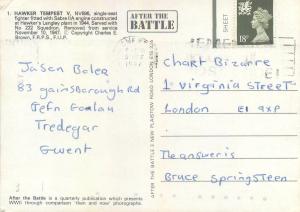 1. HAWKER TEMPEST V, NV696, single-seat
fighter fitted with Sabre IIA engine constructed
at Hawker's Langley plant in 1944. Served with
No 222 Squadron. Removed from service
November 10, 1947. © Copyright Charles E.
Brown, F.R.P.S., F.I.I.P.
AFTER THE
BATTLE
SHEET
18
Jason Boler
83 gainsborough Rd
Cefn Golau
Tredegar
Gwent
AFTER THE BATTLE 3 NEW PLAISTOW ROAD LONDON E15 3JA
Chart Bizarre
1 virginia Street
London E1 9XP
The answer is
Bruce Springsteen
After the Battle is a quarterly publication which presents
WWII through comparison 'then and now' photographs.